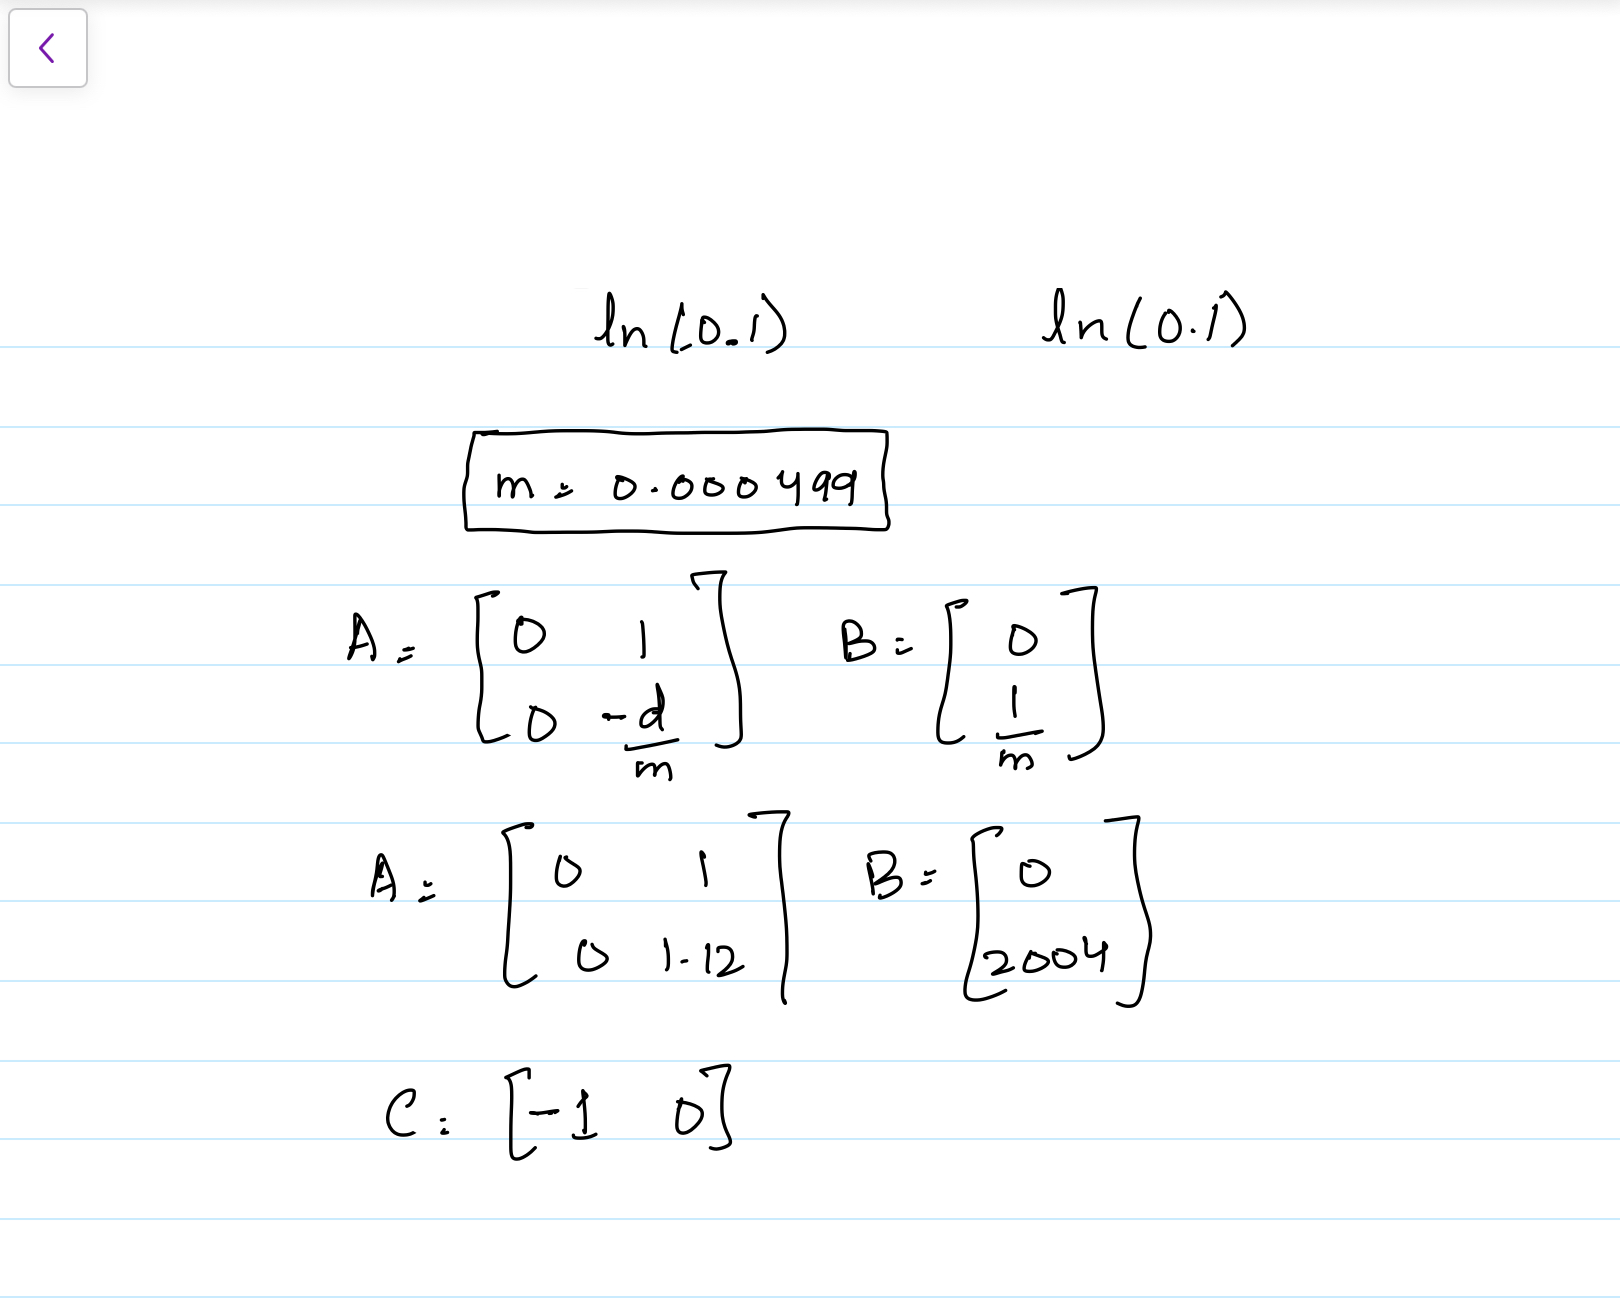 ln(0.1) ln(0.1)
m = 0.000499
A = [0 1
0 -d/m] B = [0
1/m]
A = [0 1
0 1.12] B = [0
2004]
C = [-1 0]